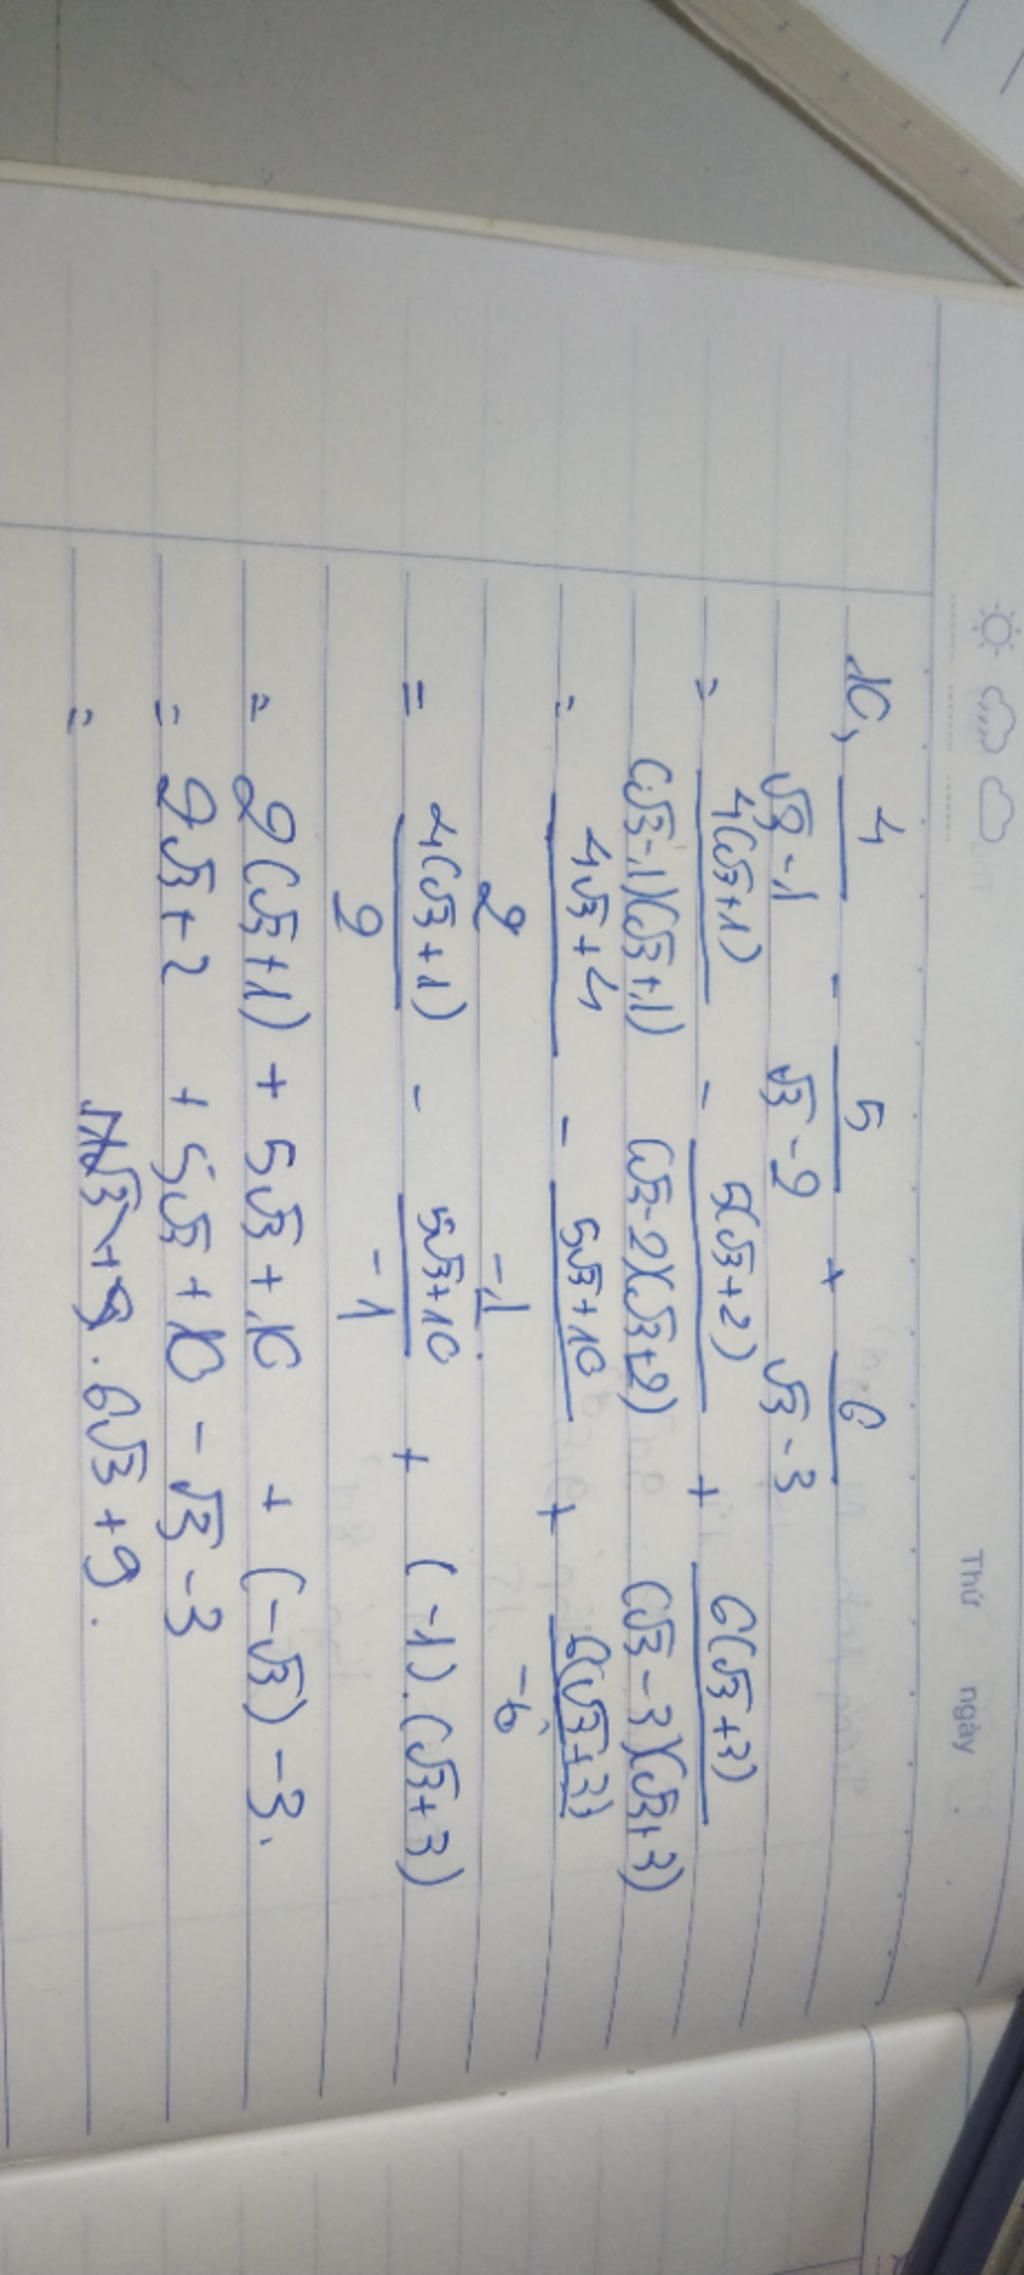 Thứ ngày
10, 4/(√3 - 1) - 5/(√3 - 2) + 6/(√3 - 3)
= 4(√3+1)/(√3-1)(√3+1) - 5(√3+2)/(√3-2)(√3+2) + 6(√3+3)/(√3-3)(√3+3)
= (4√3+4)/2 - (5√3+10)/-1 + 6(√3+3)/-6
= 4(√3+1)/2 - (5√3+10)/-1 + (-1).(√3+3)
= 2(√3+1) + 5√3+10 + (-√3) - 3.
= 2√3+2 + 5√3+10 - √3 - 3
= 6√3+9.